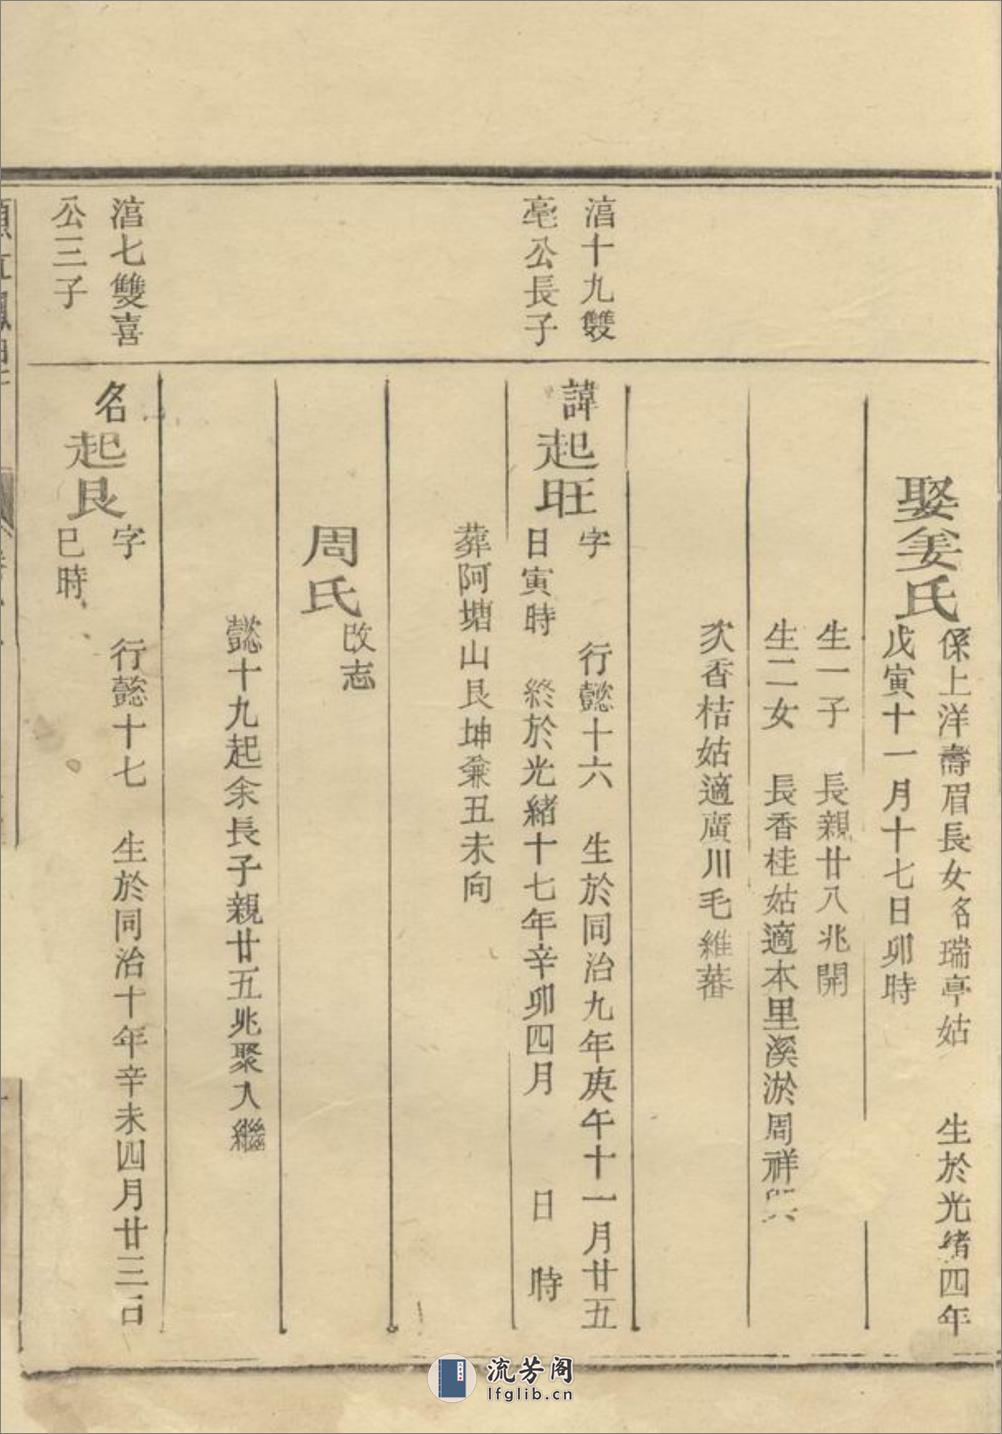 娶姜氏
係上洋壽眉長女名瑞亭姑 生於光緒四年
戊寅十一月十七日卯時
生一子 長親廿八兆開
生二女 長香桂姑適本里溪淤周祥
次香桔姑適廣川毛維蕃
湻十九雙
亳公長子
諱起旺
字 行懿十六 生於同治九年庚午十一月廿五
日寅時 終於光緒十七年辛卯四月 日 時
葬阿塘山艮坤兼丑未向
周氏
改志
懿十九起余長子親廿五兆聚入繼
湻七雙喜
公三子
名起艮
字 行懿十七 生於同治十年辛未四月廿三日
巳時
流芳阁
lfglib.cn